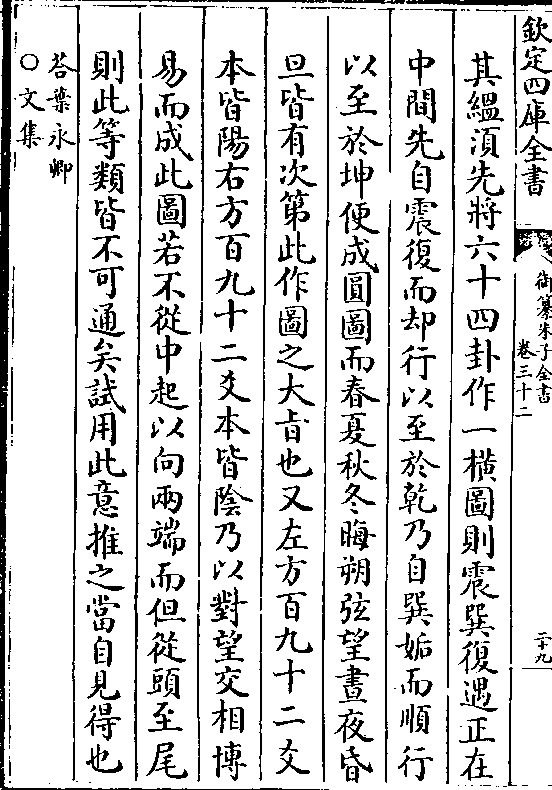 欽定四庫全書
御纂朱子全書
卷三十二
二十九
其緼湏先將六十四卦作一橫圖則震巽復遇正在
中間先自震復而却行以至於乾乃自巽姤而順行
以至於坤便成圓圖而春夏秋冬晦朔弦望晝夜昏
旦皆有次第此作圖之大㫖也又左方百九十二爻
本皆陽右方百九十二爻本皆陰乃以對望交相博
易而成此圖若不從中起以向兩端而但從頭至尾
則此等類皆不可通矣試用此意推之當自見得也
荅葉永卿
○文集